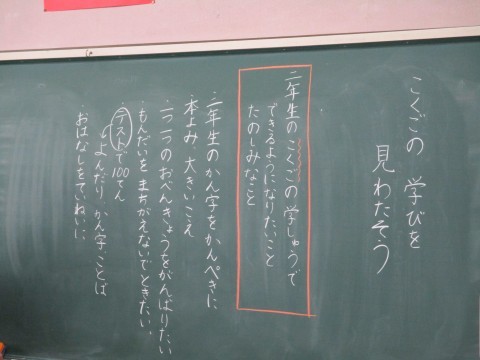 こくごの 学びを
見わたそう
二年生のこくごの学しゅうで
できるようになりたいこと
たのしみなこと
・二年生のかん字をかんぺきに
・本よみ 大きいこえ
・一つ一つのおべんきょうをがんばりたい
・もんだいを まちがえないでときたい。
・テストで100てん
よんだり かん字 ことば
・おはなしをていねいに